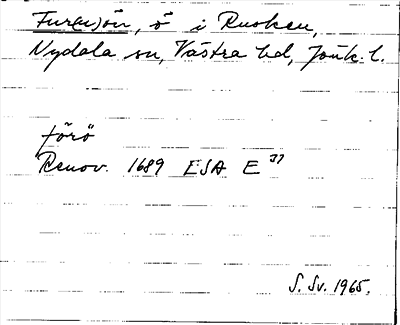 Fur(u)ön, ö i Rusken,
Nydala sn, Västra hd, Jönk. l.
förö
Renov. 1689 ESA E 37
S. Sv. 1965.